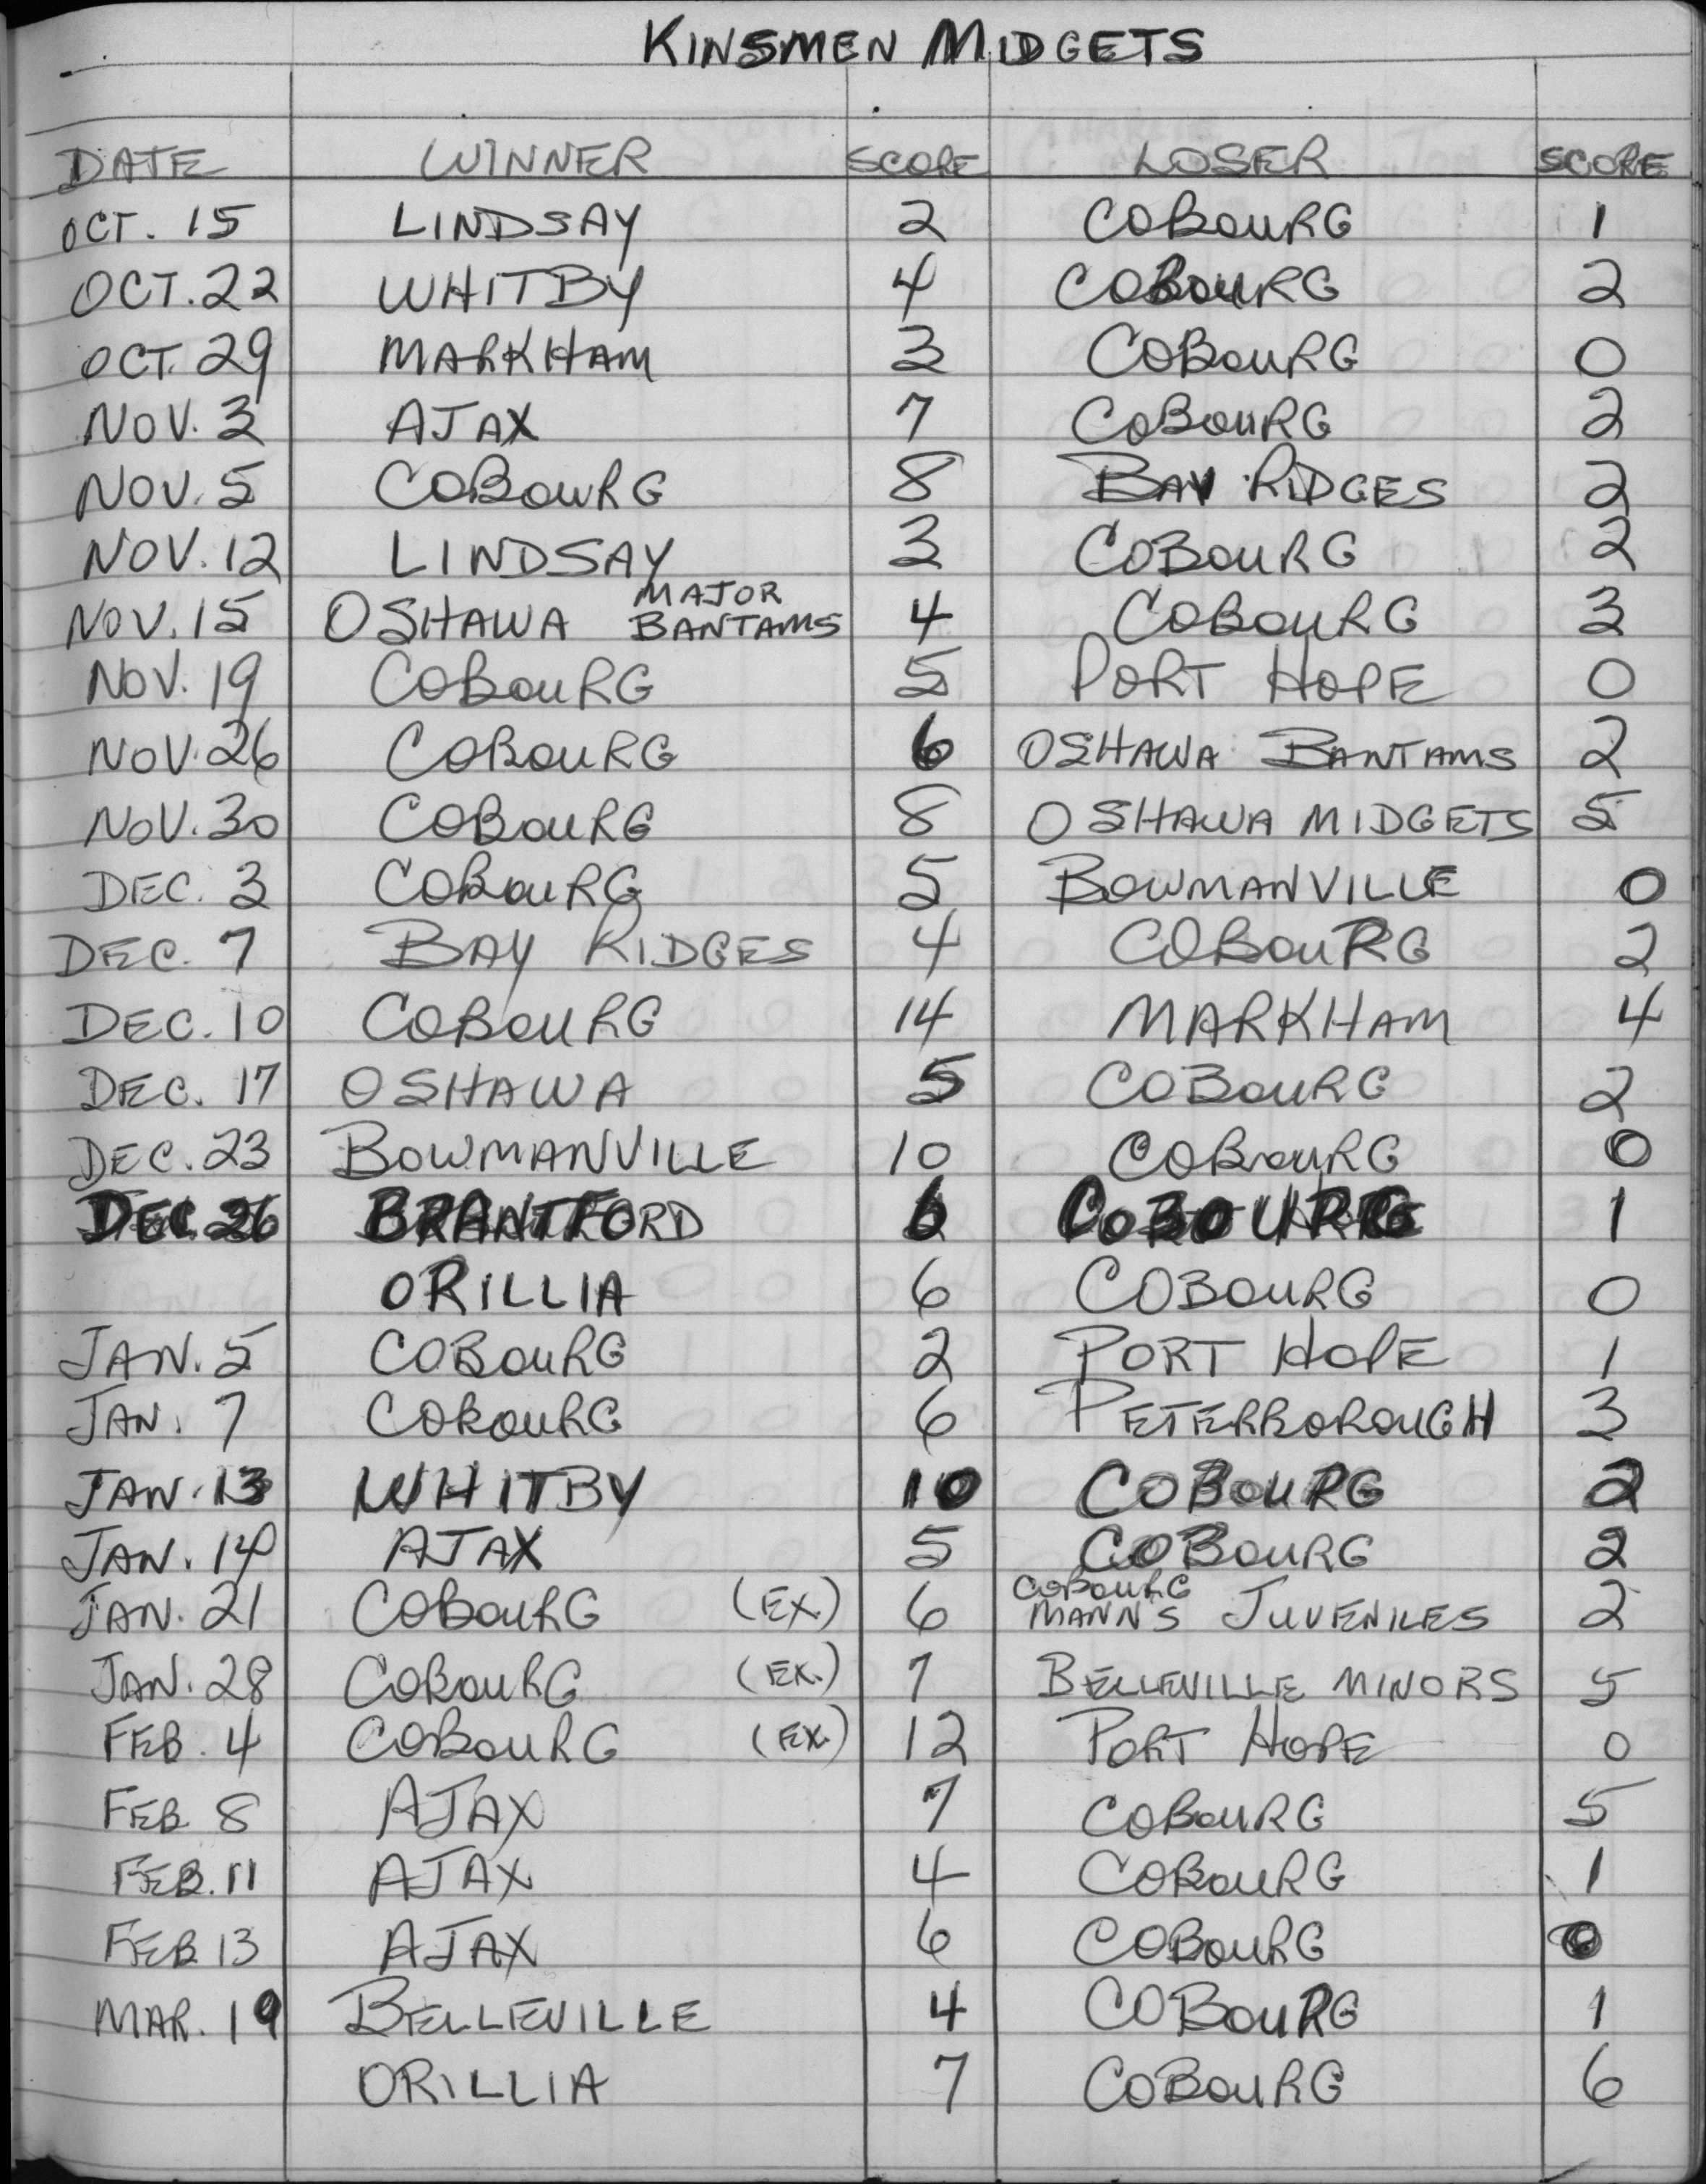 KINSMEN MIDGETS
DATE WINNER SCORE LOSER SCORE
OCT. 15 LINDSAY 2 COBOURG 1
OCT. 22 WHITBY 4 COBOURG 2
OCT. 29 MARKHAM 3 COBOURG 0
NOV. 3 AJAX 7 COBOURG 2
NOV. 5 COBOURG 8 BAY RIDGES 2
NOV. 12 LINDSAY 3 COBOURG 2
NOV. 15 OSHAWA MAJOR BANTAMS 4 COBOURG 3
NOV. 19 COBOURG 5 PORT HOPE 0
NOV. 26 COBOURG 6 OSHAWA BANTAMS 2
NOV. 30 COBOURG 8 OSHAWA MIDGETS 5
DEC. 3 COBOURG 5 BOWMANVILLE 0
DEC. 7 BAY RIDGES 4 COBOURG 2
DEC. 10 COBOURG 14 MARKHAM 4
DEC. 17 OSHAWA 5 COBOURG 2
DEC. 23 BOWMANVILLE 10 COBOURG 0
DEC 26 BRANTFORD 6 COBOURG 1
ORILLIA 6 COBOURG 0
JAN. 5 COBOURG 2 PORT HOPE 1
JAN. 7 COBOURG 6 PETERBOROUGH 3
JAN. 13 WHITBY 10 COBOURG 2
JAN. 14 AJAX 5 COBOURG 2
JAN. 21 COBOURG (EX.) 6 COBOURG MANN'S JUVENILES 2
JAN. 28 COBOURG (EX.) 7 BELLEVILLE MINORS 5
FEB. 4 COBOURG (EX.) 12 PORT HOPE 0
FEB 8 AJAX 7 COBOURG 5
FEB. 11 AJAX 4 COBOURG 1
FEB 13 AJAX 6 COBOURG 0
MAR. 19 BELLEVILLE 4 COBOURG 1
ORILLIA 7 COBOURG 6